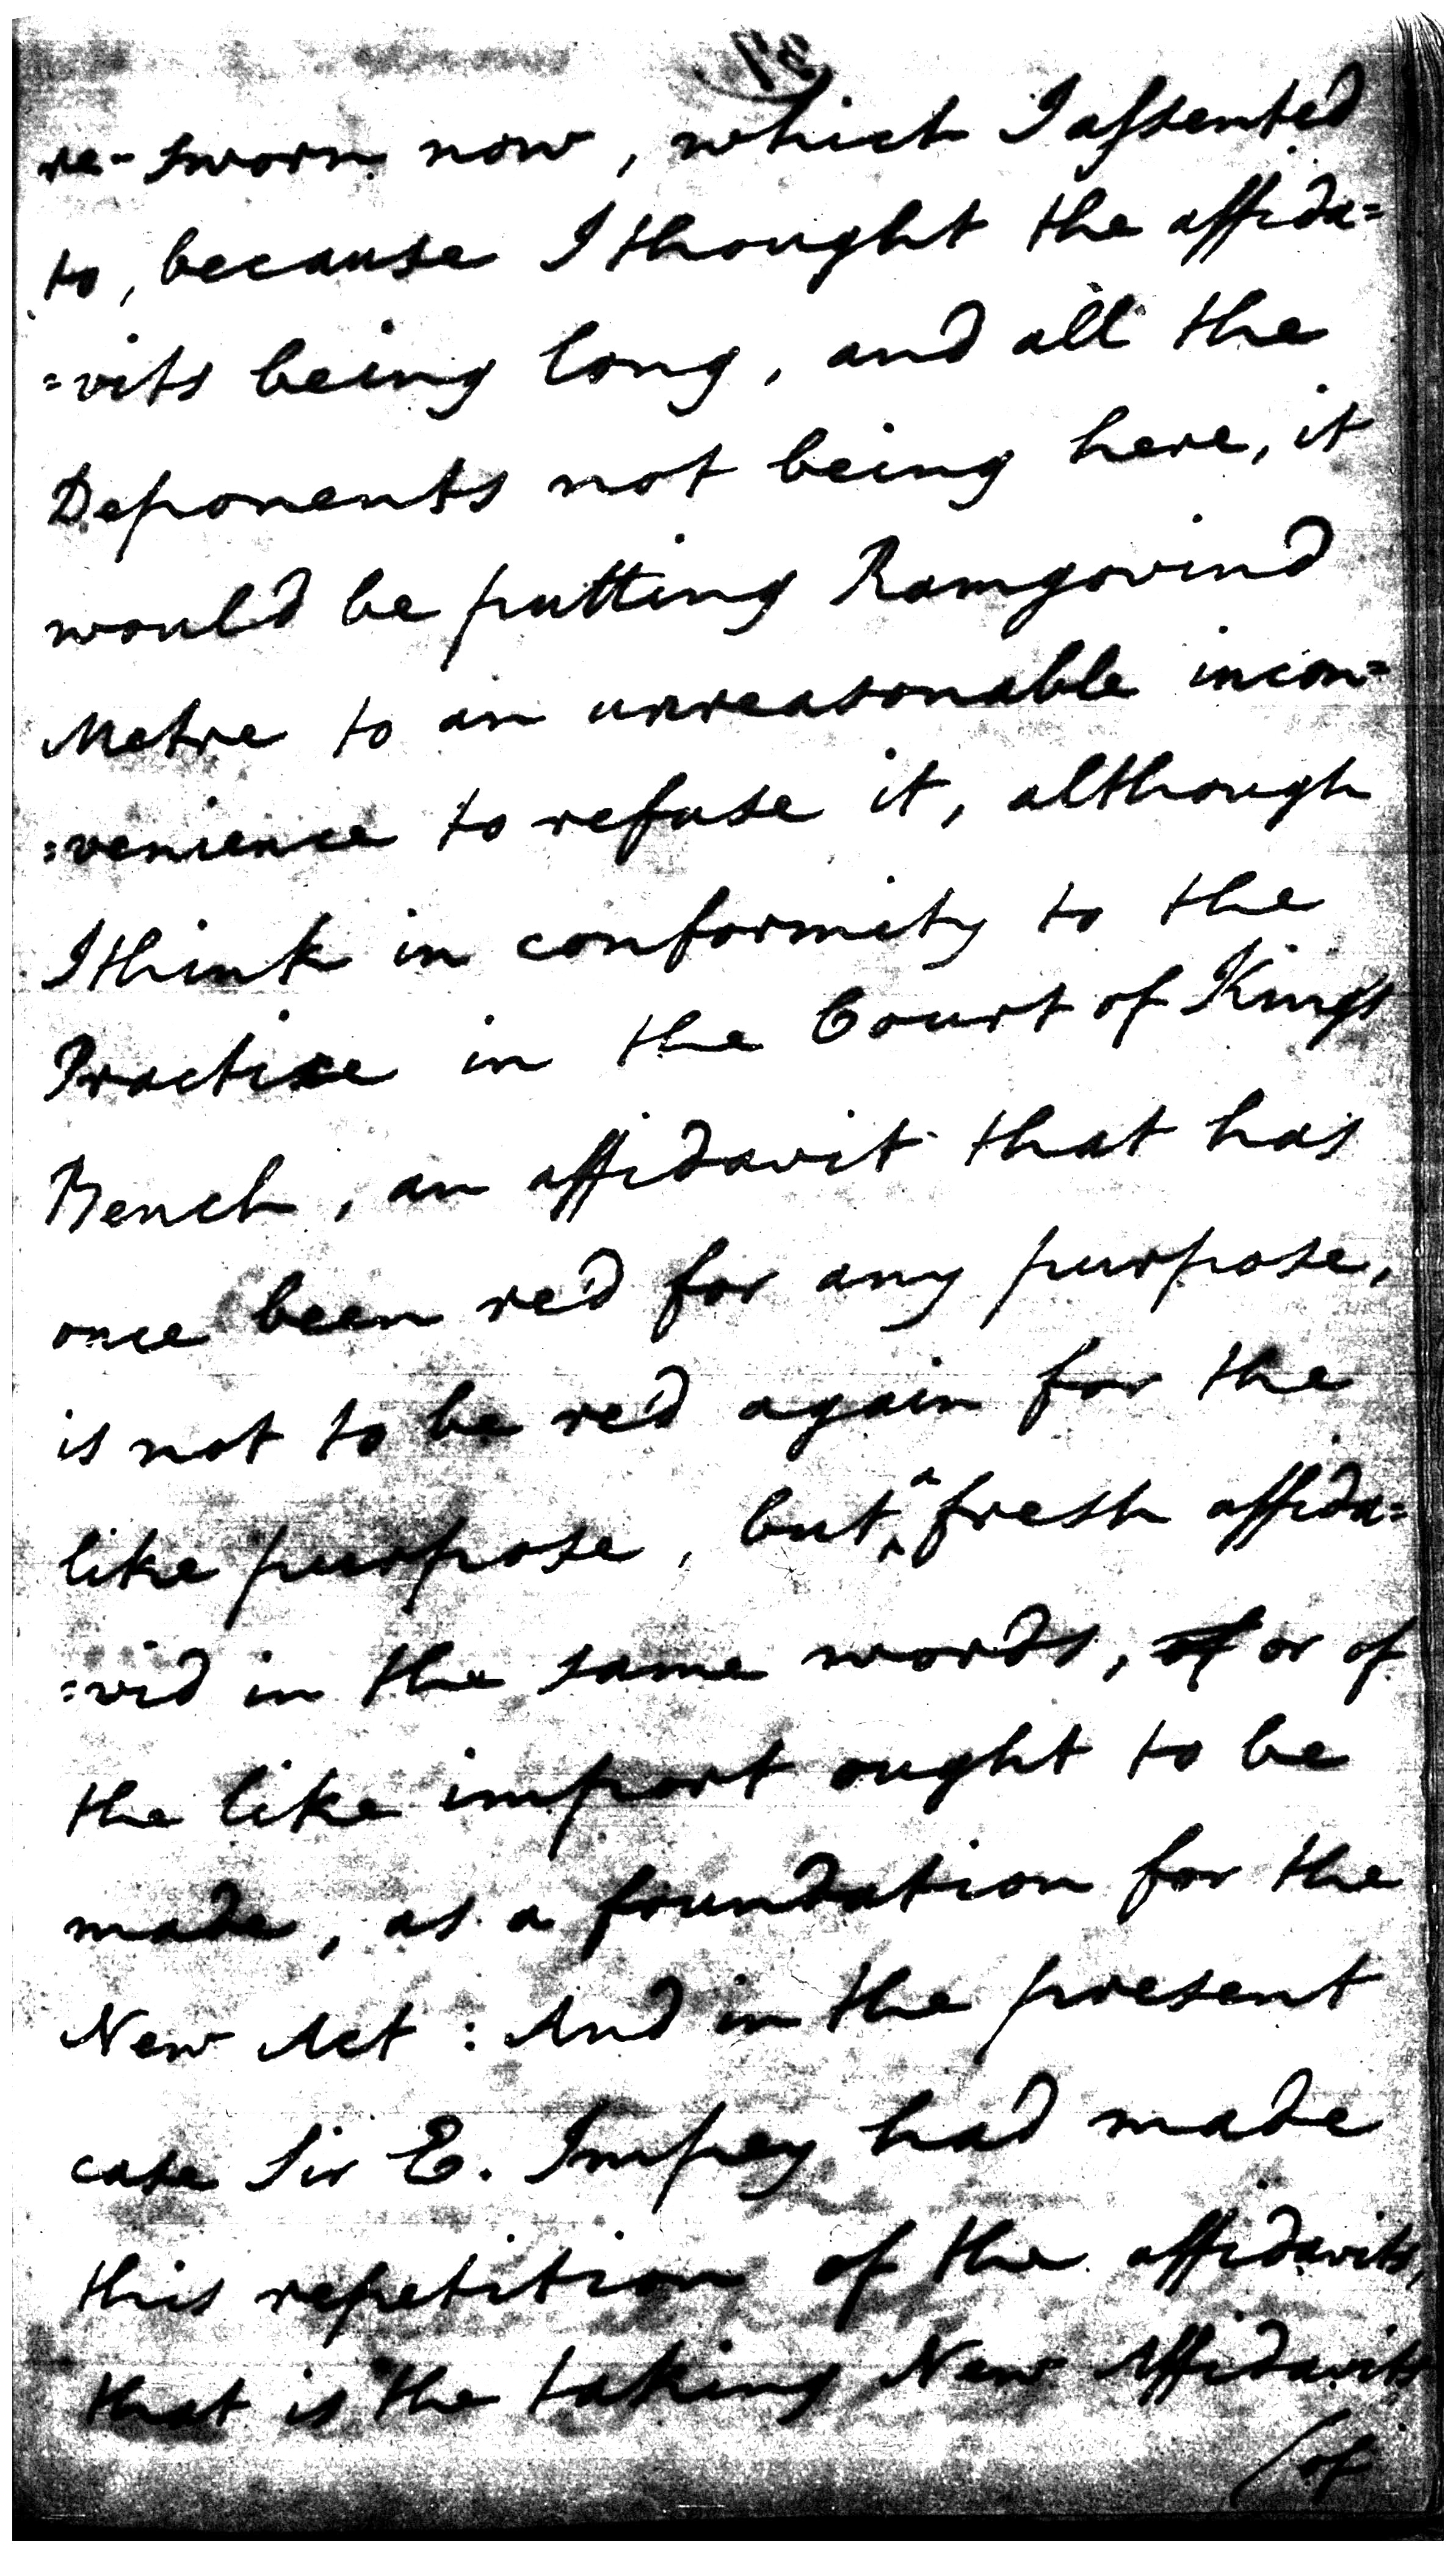 re-sworn now, which I assented
to, because I thought the affida=
=vits being long, and all the
Deponents not being here, it
would be putting Ramgovind
Metre to an unreasonable incon=
=venience to refuse it, although
I think in conformity to the
Practice in the Court of Kings
Bench, an affidavit that has
once been red for any purpose,
is not to be red again for the
like purpose, but a fresh affida=
=vid in the same words, of or of
the like import ought to be
made, as a foundation for the
New Act: And in the present
case Sir E. Impey had made
this repetition of the affidavits,
that is the taking New Affidavits
(of